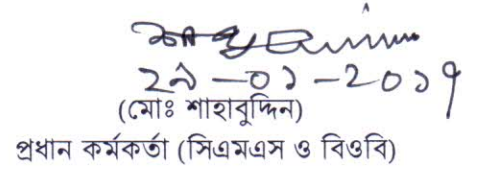 ২৯-০১-২০১৭
(মোঃ শাহাবুদ্দিন)
প্রধান কর্মকর্তা (সিএমএস ও বিওবি)